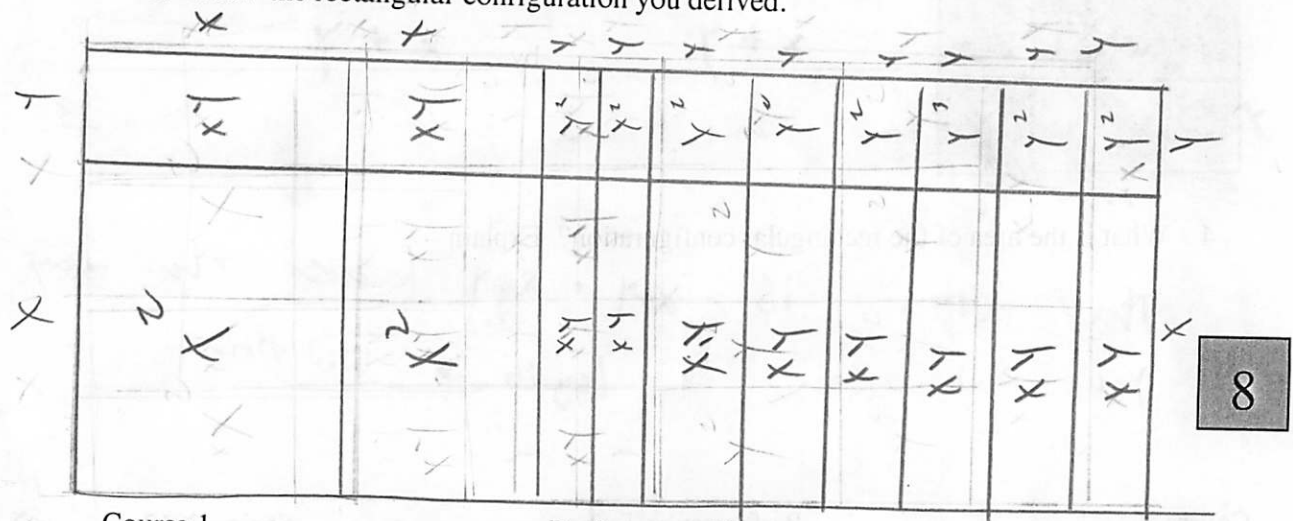 rectangular configuration you derived.
x x y y y y y y y y
y xy xy y² y² y² y² y² y² y² y² y
x x² x² xy xy xy xy xy xy xy xy x
8
Course 1